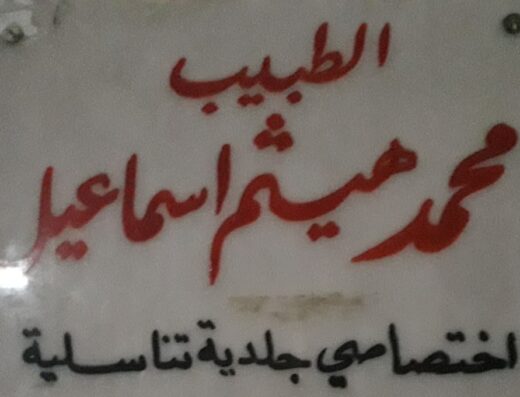 الطبيب
محمد هيثم اسماعيل
اختصاصي جلدية تناسلية